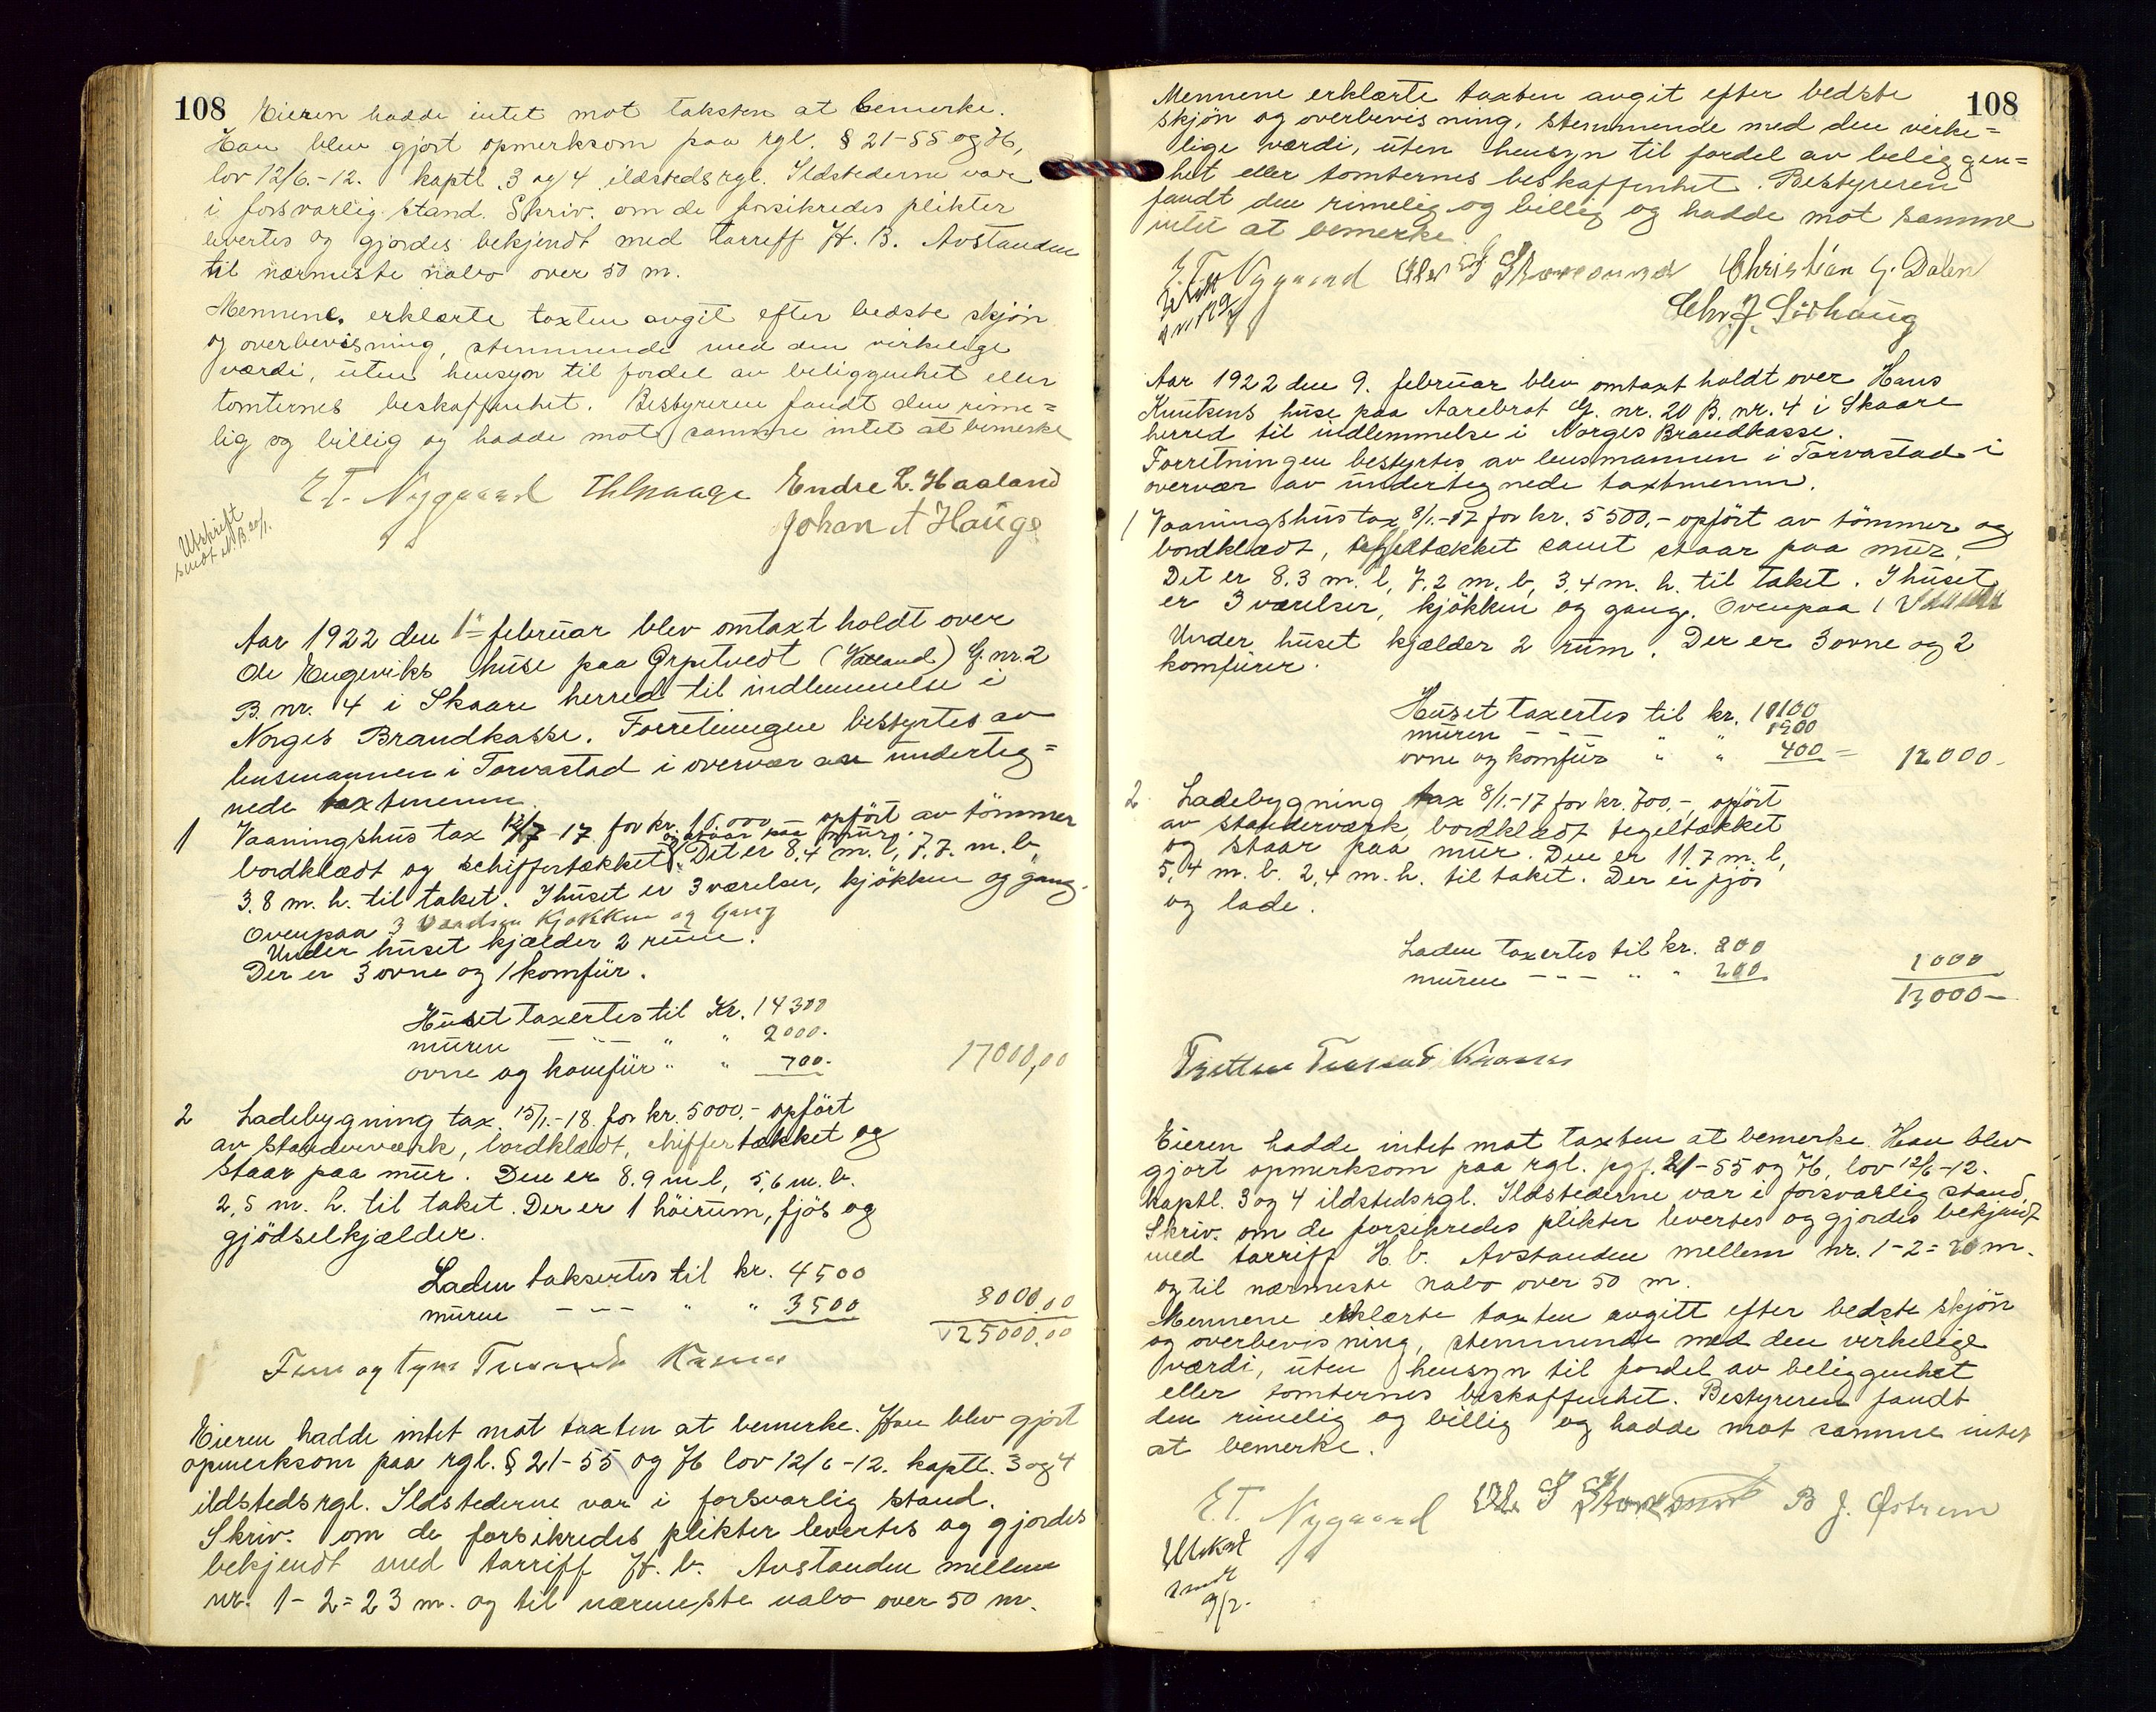 108 Eieren hadde intet mot taksten at bemerke.
Han blev gjort opmerksom paa rgl. § 21-55 og 76,
lov 12/6.-12. kaptl. 3 og 4 ildstedsrgl. Ildstederne var
i forsvarlig stand. Skriv. om de forsikredes plikter
levertes og gjordes bekjendt med tarriff H. B. Avstanden
til nærmeste nabo over 50 m.
Mennene erklærte taxten avgit efter bedste skjön
og overbevisning, stemmende med den virkelige
værdi, uten hensyn til fordel av beliggenhet eller
tomternes beskaffenhet. Bestyreren fandt den rime=
lig og billig og hadde mot samme intet at bemerke
E. T. Nygaard Endre L. Haaland
Johan A Hauge
Utskrift
sendt N.B. 20/1.
Aar 1922 den 1= februar blev omtaxt holdt over
Ole Engeviks huse paa (Valand) G. nr. 2
B. nr. 4 i Skaare herred til indlemmelse i
Norges Brandkasse. Forretningen bestyrtes av
lensmannen i Torvastad i overvær av undertig=
nede taxtmenn.
1 Vaaningshus tax -17 for kr. 10.000 - opfört av tömmer
og staar paa mur.
bordklædt og schiffertækket. Det er 8.4 m. l, 7.7. m. b,
3.8 m. h. til taket. I huset er 3 værelser, kjökken og gang.
Ovenpaa 3 Kjøkken og Gang
Under huset kjælder 2 rum.
Der er 3 ovne og 1 komfür.
Huset taxertes til Kr. 14300
muren - - - " " 2000.
ovne og komfür " " 700. 17000,00
2 Ladebygning tax. 15/1.-18 for kr. 5000.- opfört
av standerværk, bordklædt, chiffertækket og
staar paa mur. Den er 8.9 m l, 5,6 m. b.
2,5 m. h. til taket. Der er 1 höirum, fjös og
gjödselkjælder.
Laden taksertes til kr. 4500
muren - - - " " 3500 8000.00
25000.00
Fem og tyve Tusende Kroner
Eieren hadde intet mot taxten at bemerke. Han blev gjort
opmerksom paa rgl. § 21-55 og 76 lov 12/6-12. kaptl. 3 og 4
ildstedsrgl. Ildstederne var i forsvarlig stand.
Skriv. om de forsikredes plikter levertes og gjordes
bekjendt med tarriff H. b. Avstanden mellem
nr. 1-2=23 m. og til nærmeste nabo over 50 m.
108
Mennene erklærte taxten avgit efter bedste
skjön og overbevisning, stemmende med den virke=
lige værdi, uten hensyn til fordel av beliggen=
het eller tomternes beskaffenhet. Bestyreren
fandt den rimelig og billig og hadde mot samme
intet at bemerke.
E. T. Nygaard Christian G. Dalen
Chr. J. Sörhaug
Aar 1922 den 9. februar blev omtaxt holdt over Hans
Knutsens huse paa Aarebrot G. nr. 20 B. nr. 4 i Skaare
herred til indlemmelse i Norges Brandkasse.
Forretningen bestyrtes av lensmannen i Torvastad i
overvær av undertegnede taxtmenn.
1 Vaaningshus tax 8/1.-17 for kr. 5500.- opfört av tömmer og
bordklædt, tegeltækket samt staar paa mur.
Det er 8.3 m. l, 7.2 m. b, 3.4 m. h. til taket. I huset
er 3 værelser, kjökken og gang. Ovenpaa 1
Under huset kjælder 2 rum. Der er 3 ovne og 2
komfürer.
Huset taxertes til kr. 10100
muren - - - " " 1500
ovne og komfür " " 400 = 12000.
2 Ladebygning tax 8/1.-17 for kr. 700.-, opfört
av standerværk, bordklædt tegeltækket
og staar paa mur. Den er 11.7 m. l,
5,4 m. b. 2,4 m. h. til taket. Der er fjös
og lade.
Laden taxertes til kr. 800
muren - - - " " 200 1000
13000-
Tretten Tusend Kroner
Eieren hadde intet mot taxten at bemerke. Han blev
gjort opmerksom paa rgl. pgf. 21-55 og 76, lov 12/6-12.
kaptl. 3 og 4 ildstedsrgl. Ildstederne var i forsvarlig stand.
Skriv. om de forsikredes plikter levertes og gjordes bekjendt
med tarriff H. b. Avstanden mellem nr. 1-2= 20 m.
og til nærmeste nabo over 50 m.
Mennene erklærte taxten avgitt efter bedste skjön
og overbevisning, stemmende med den virkelige
værdi, uten hensyn til fordel av beliggenhet
eller tomternes beskaffenhet. Bestyreren fandt
den rimelig og billig og hadde mot samme intet
at bemerke.
E. T. Nygaard B J. Østrem
Utskrt
sendt
9/2.